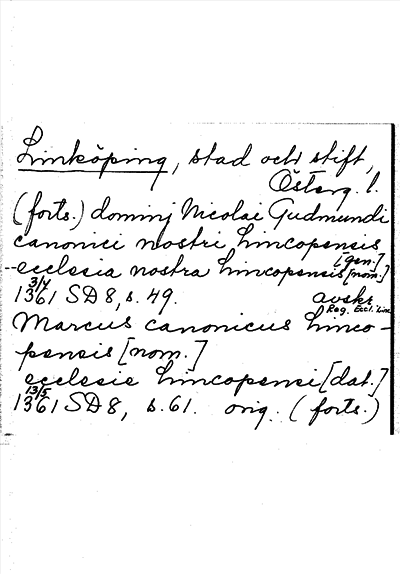 Linköping, stad och stift,
Österg. l.
(forts.) dominj Nicolai Gudmundi
canonici nostri Lincopensis
[gen.]
--ecclesia nostra Lincopensis [nom.]
3/4
1361 SD 8, s. 49. avskr.
Reg. Eccl. Linc
Marcus canonicus Linco-
pensis [nom.]
ecclesie Lincopensi [dat.]
13/5
1361 SD 8, s. 61. orig. (forts.)